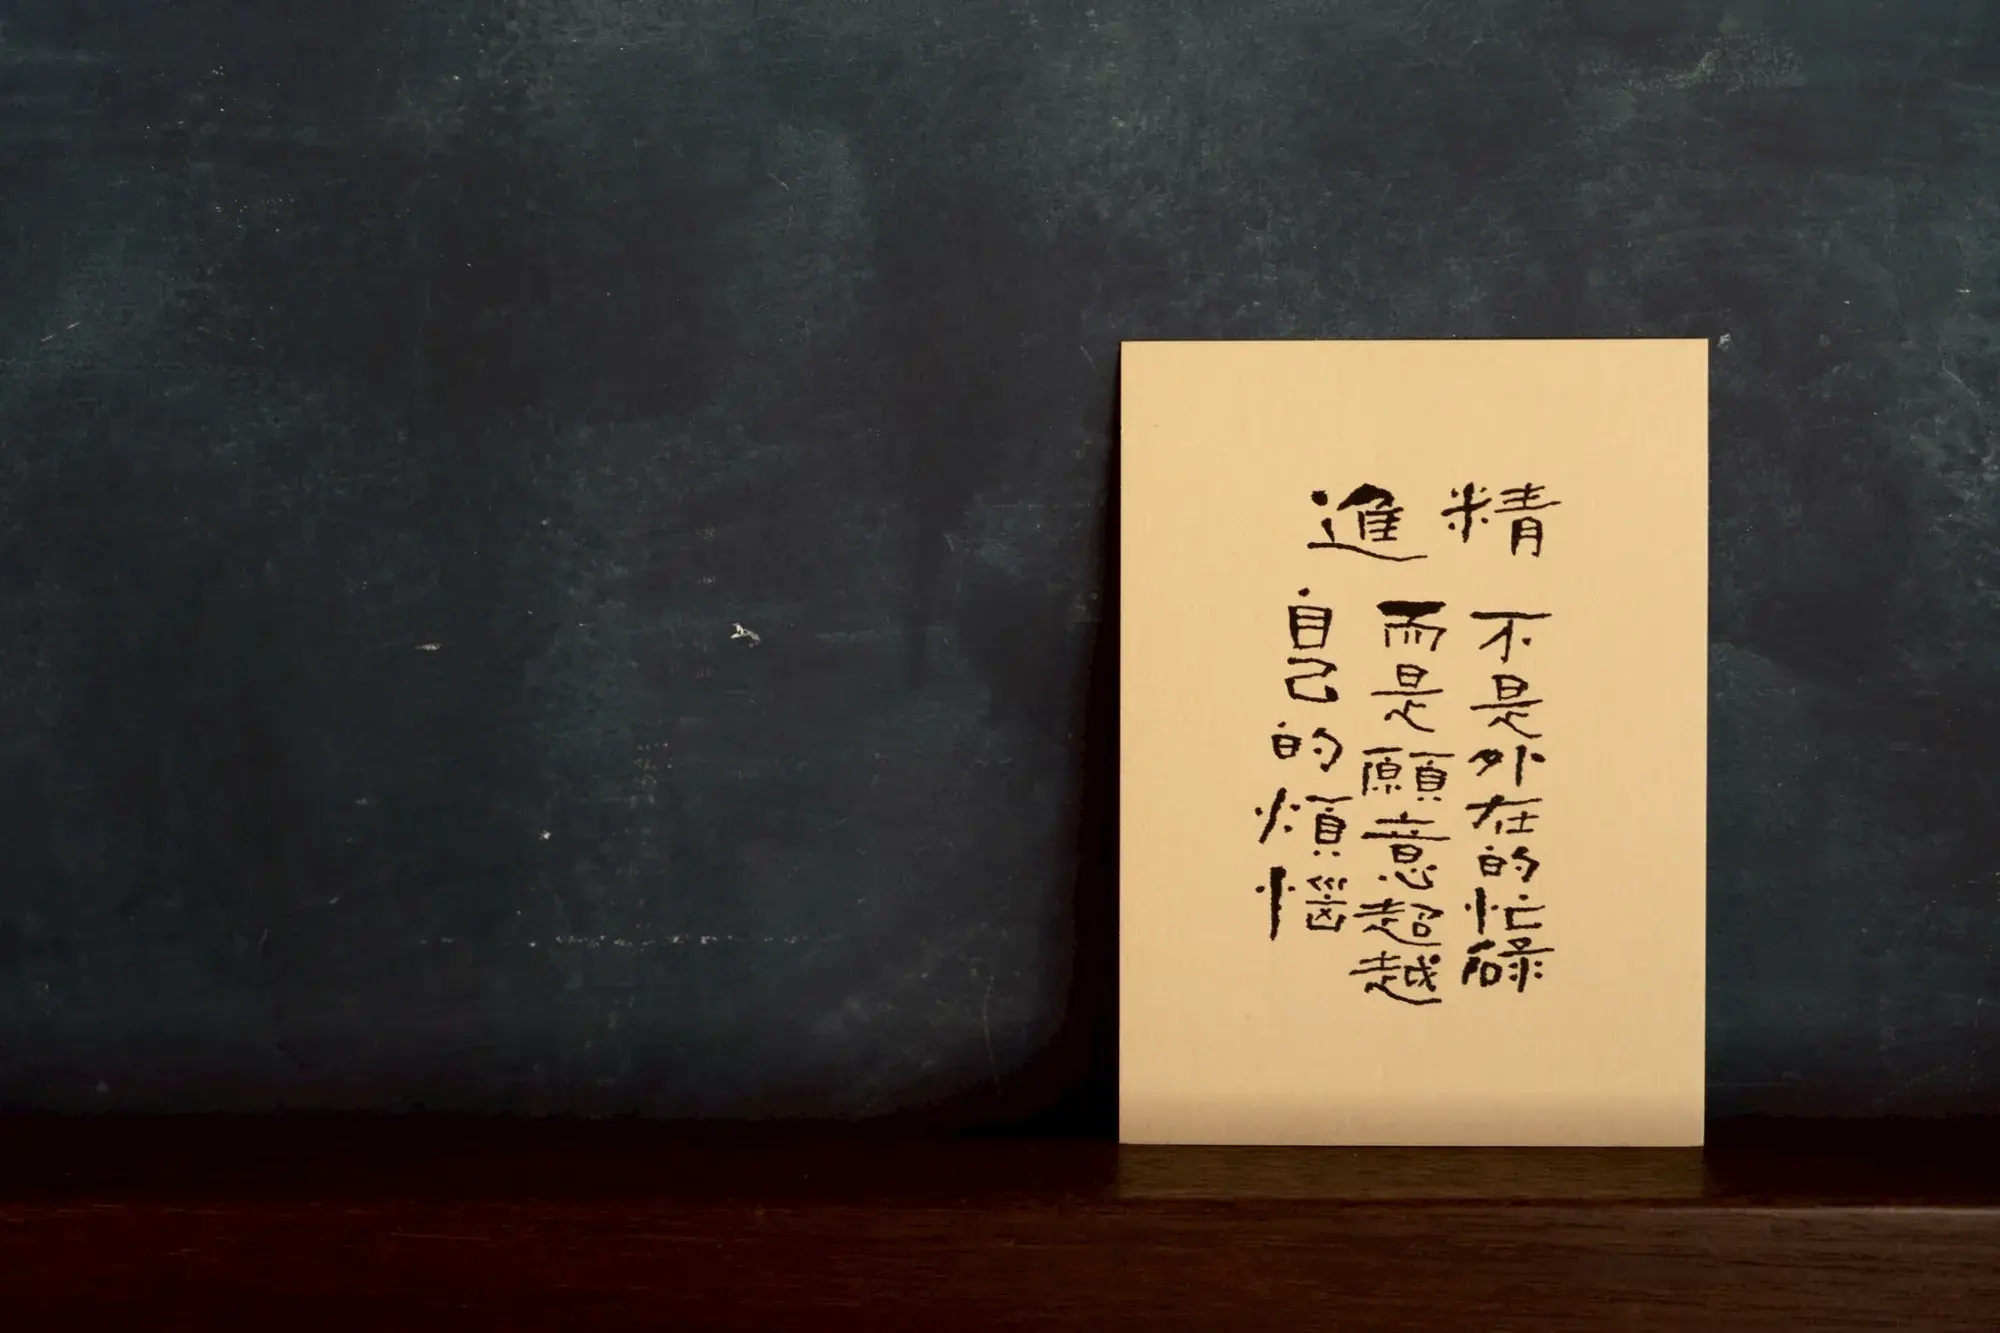 精進
不是外在的忙碌
而是願意超越
自己的煩惱